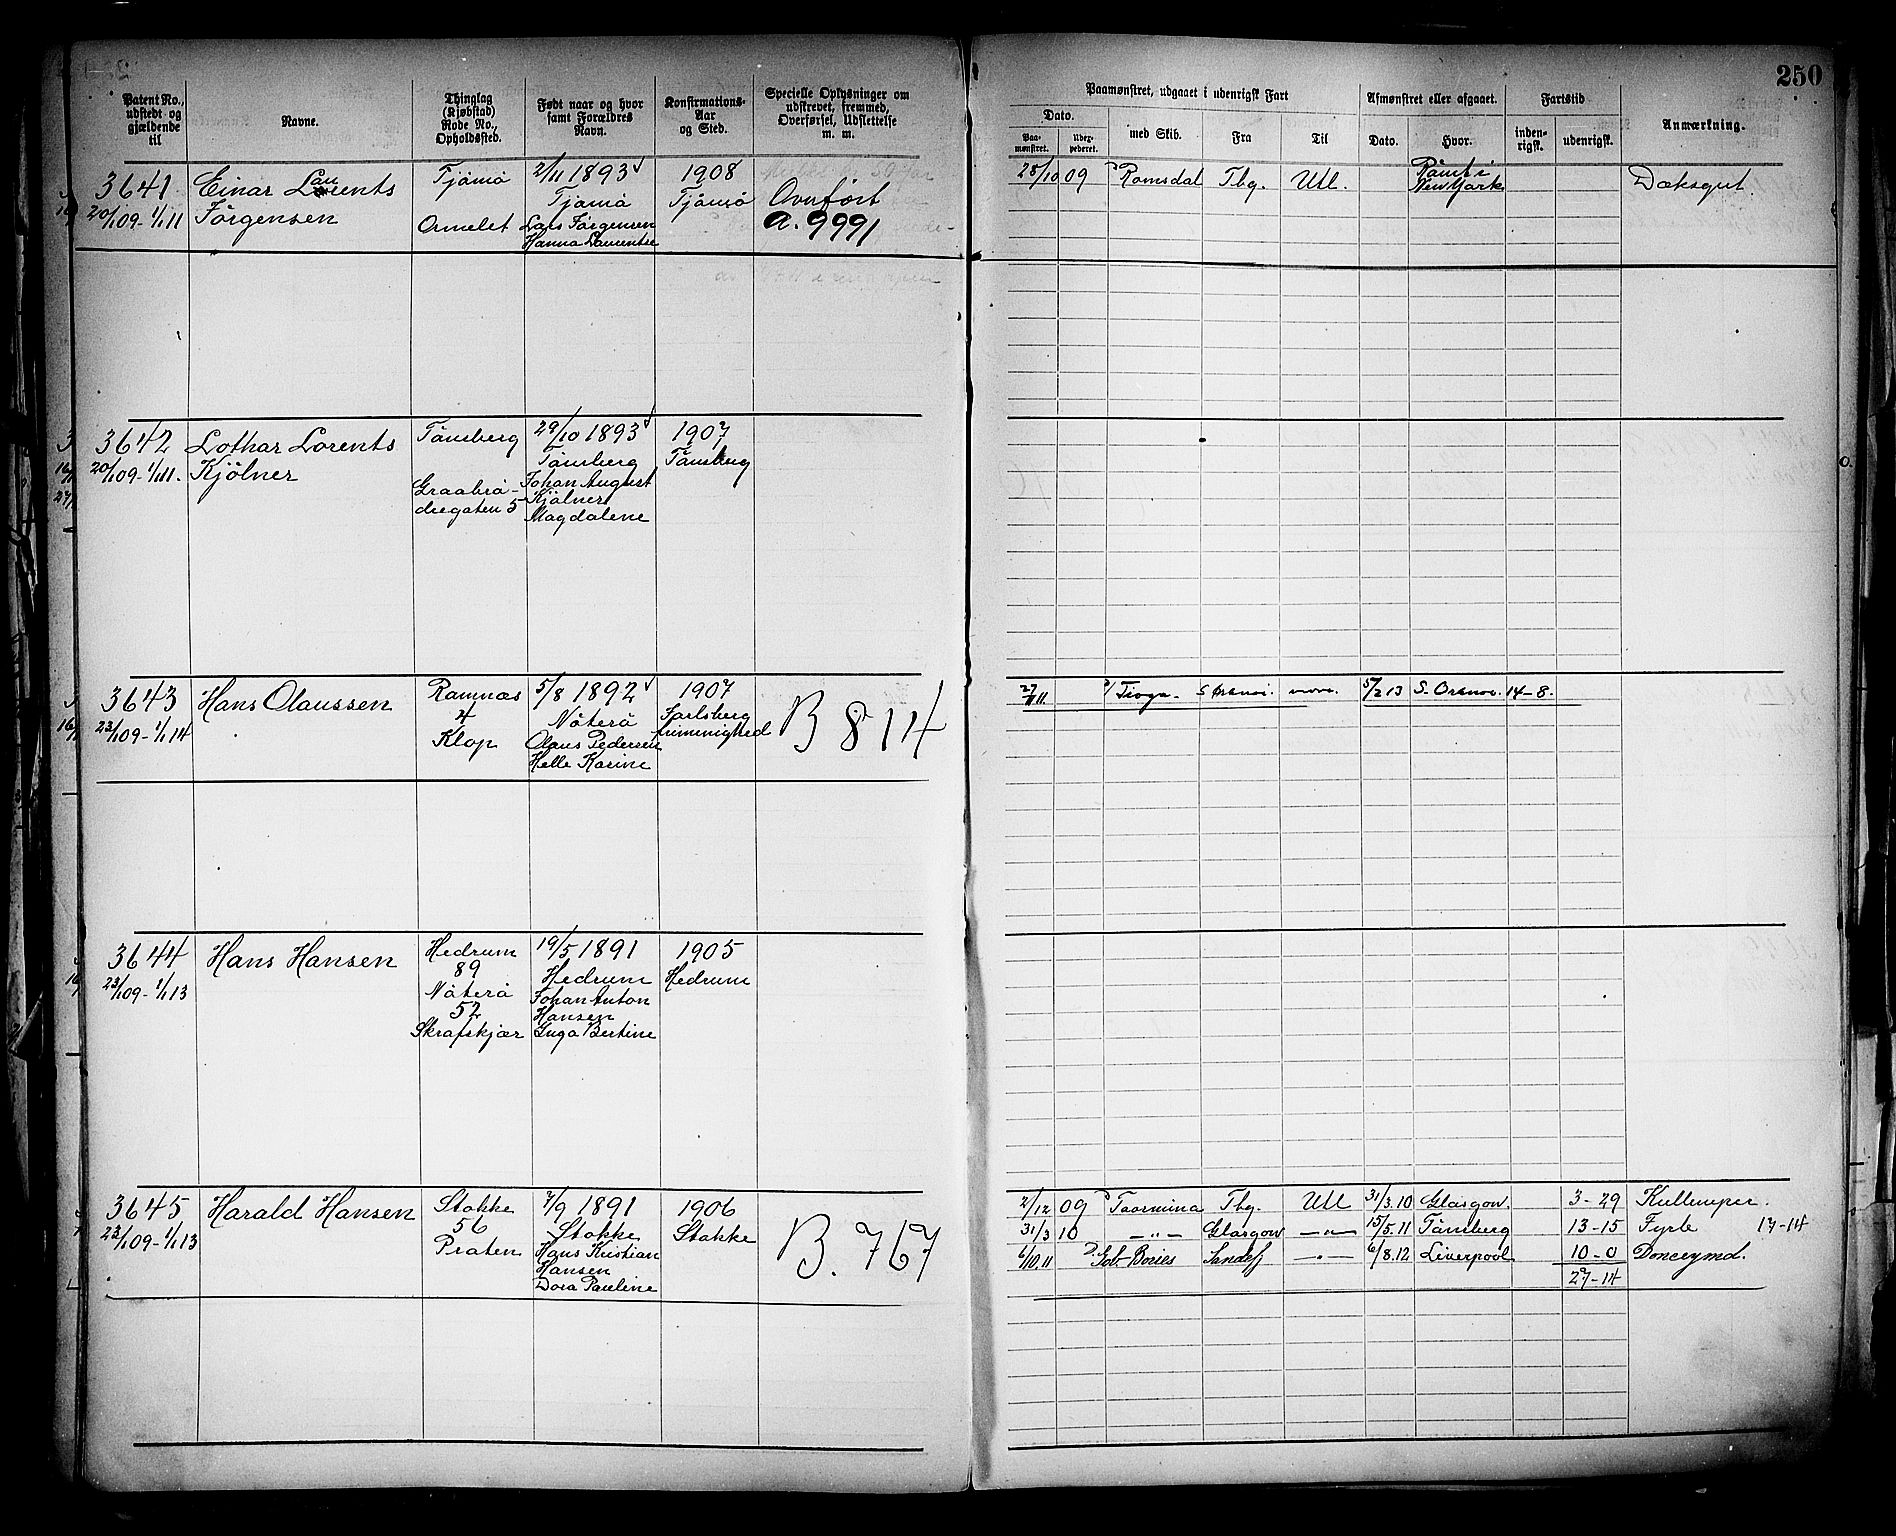 250
Patent No., udstedt og gjældende til
Navne.
Thinglag (Kjøbstad) Rode No., Opholdssted.
Født naar og hvor samt Forældres Navn.
Konfirmations-Aar og Sted.
Specielle Oplysninger om udskrevet, fremmed, Overførsel, Udslettelse m. m.
Paamønstret, udgaaet i udenrigsk Fart
Afmønstret eller afgaaet.
Fartstid
Anmærkning.
Dato.
Paamønstret.
med Skib.
Fra
Til
Dato.
Hvor.
indenrigsk.
udenrigsk.
3641
20/1 09 - 1/1 11
Einar Laurents
Jørgensen
Tjømø
Ormelet
2/11 1893
Tjømø
Lars Jørgensen
Hanna Laurentse
1908
Tjømø
Overført
a. 9991
28/10 09 Romsdal Tbg. Utl. Rømt i
New York
Dæksgut.
3642
20/1 09 - 1/1 11.
Lothar Lorents
Kjølner
Tønsberg
Graabrø-
dregaten 5
29/10 1893
Tønsberg
Johan August
Kjølner
Magdalene
1907
Tønsberg
3643
23/1 09 - 1/1 14
Hans Olaussen
Ramnæs
4
Klop
5/8 1892
Nøterø
Olaus Pedersen
Helle Karine
1907
Jarlsberg
frimenighed
B 814
27/11 11. Tioga 5/2 13 14-8.
3644
23/1 09 - 1/1 13
Hans Hansen
Hedrum
89
Nøterø
52
Skrafskjær
19/5 1891
Hedrum
Johan Anton
Hansen
Inga Bertine
1905
Hedrum
3645
23/1 09 - 1/1 13
Harald Hansen
Stokke
56
Præten
7/9 1891
Stokke
Hans Kristian
Hansen
Dora Pauline
1906
Stokke
B. 767
2/12 09 Taormina Tbg. Utl 31/3.10 Glasgow. 3-29
31/3 10 -"- Glasgow -"- 15/5.11 Tønsberg 13-15 Fyrb 17-14
6/10.11 Gov. Bories Sandefj -"- 6/8.12 Liverpool 10-0 Donceymd.
27-14